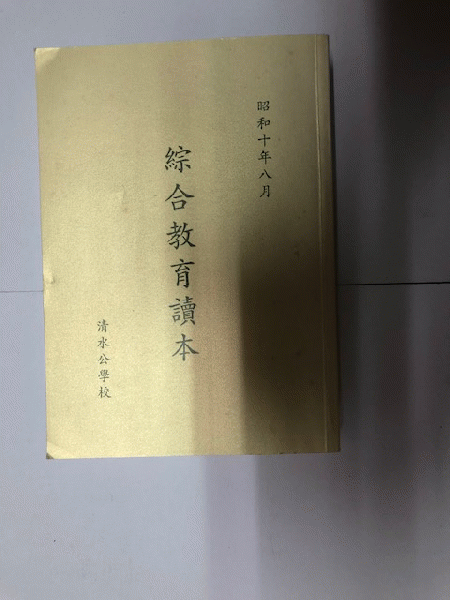 昭和十年八月
綜合教育讀本
清水公學校